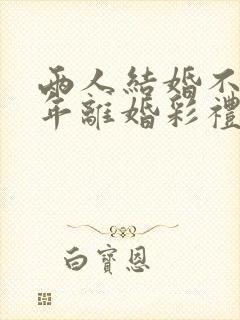 兩人結婚不
年離婚彩禮
白寶恩